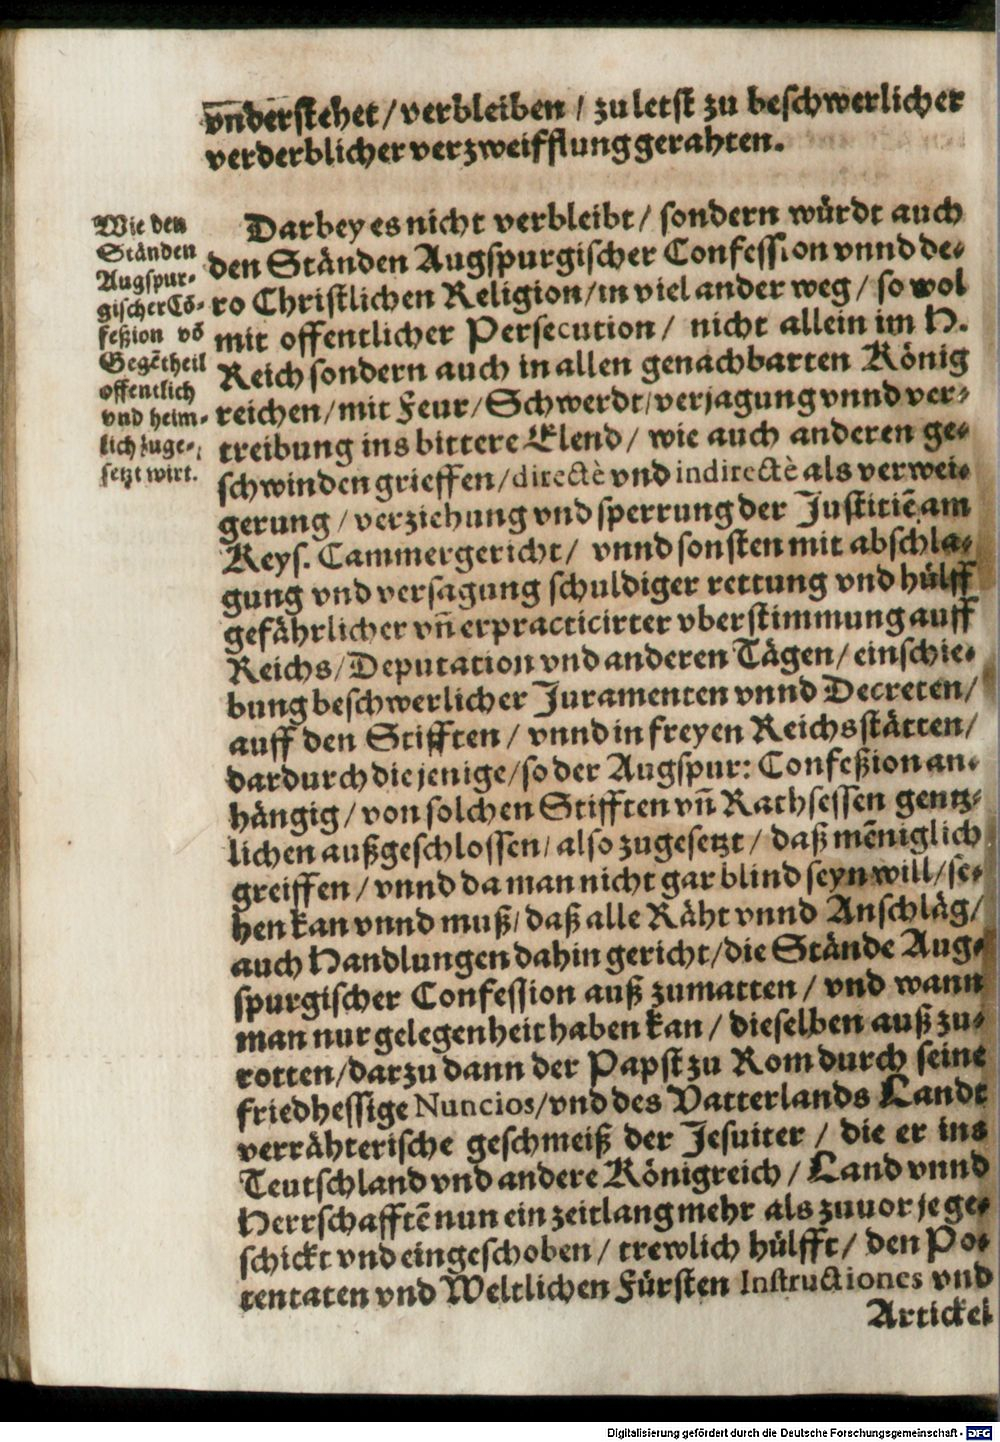 vnderstehet / verbleiben / zu letst zu beschwerlicher
verderblicher verzweifflung gerahten.
Wie den
Ständen
Augspur-
gischer Cõ-
feßion võ
Gegẽtheil
offentlich
vnd heim-
lich zuge-
setzt wirt.
Darbey es nicht verbleibt / sondern würdt auch
den Ständen Augspurgischer Confession vnnd de-
ro Christlichen Religion / in viel ander weg / so wol
mit offentlicher Persecution / nicht allein im H.
Reich sondern auch in allen genachbarten König
reichen / mit Feur / Schwerdt / verjagung vnnd ver-
treibung ins bittere Elend / wie auch anderen ge-
schwinden grieffen / directè vnd indirectè als verwei-
gerung / verziehung vnd sperrung der Justitiẽ am
Keys. Cammergericht / vnnd sonsten mit abschla-
gung vnd versagung schuldiger rettung vnd hülff
gefährlicher vñ erpracticirter vberstimmung auff
Reichs / Deputation vnd anderen Tägen / einschie-
bung beschwerlicher Juramenten vnnd Decreten /
auff den Stifften / vnnd in freyen Reichsstätten /
dardurch die jenige / so der Augspur: Confeßion an-
hängig / von solchen Stifften vñ Rathsessen gentz-
lichen außgeschlossen / also zugesetzt / daß mẽniglich
greiffen / vnnd da man nicht gar blind seyn will / se-
hen kan vnnd muß / daß alle Räht vnnd Anschläg /
auch Handlungen dahin gericht / die Stände Aug-
spurgischer Confession auß zumatten / vnd wann
man nur gelegenheit haben kan / dieselben auß zu-
rotten / darzu dann der Papst zu Rom durch seine
friedhessige Nuncios / vnd des Vatterlands Landt
verrähterische geschmeiß der Jesuiter / die er ins
Teutschland vnd andere Königreich / Land vnnd
Herrschafftẽ nun ein zeitlang mehr als zuuor je ge-
schickt vnd eingeschoben / trewlich hülfft / den Po-
tentaten vnd Weltlichen Fürsten Instructiones vnd
Artickel
Digitalisierung gefördert durch die Deutsche Forschungsgemeinschaft - DFG